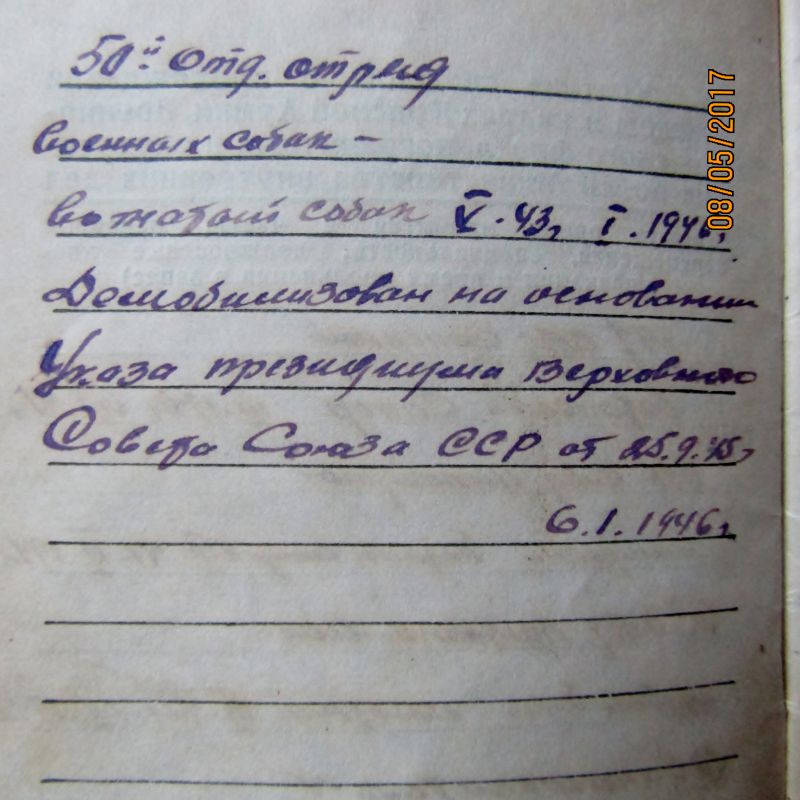 50й отд. отряд
военных собак –
вожатый собак V.43г I.1946г
Демобилизован на основании
Указа президиума Верховного
Совета Союза ССР от 25.9.45г
6.I.1946г
08/05/2017